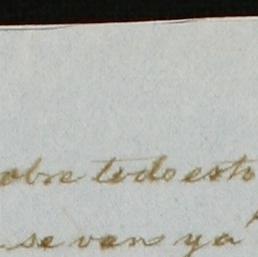 obre todo esto
se vans ya